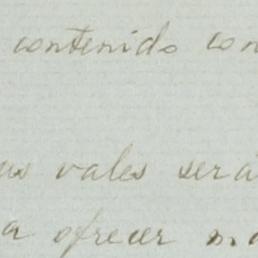 contenido con
us vales será
a ofrecer ma